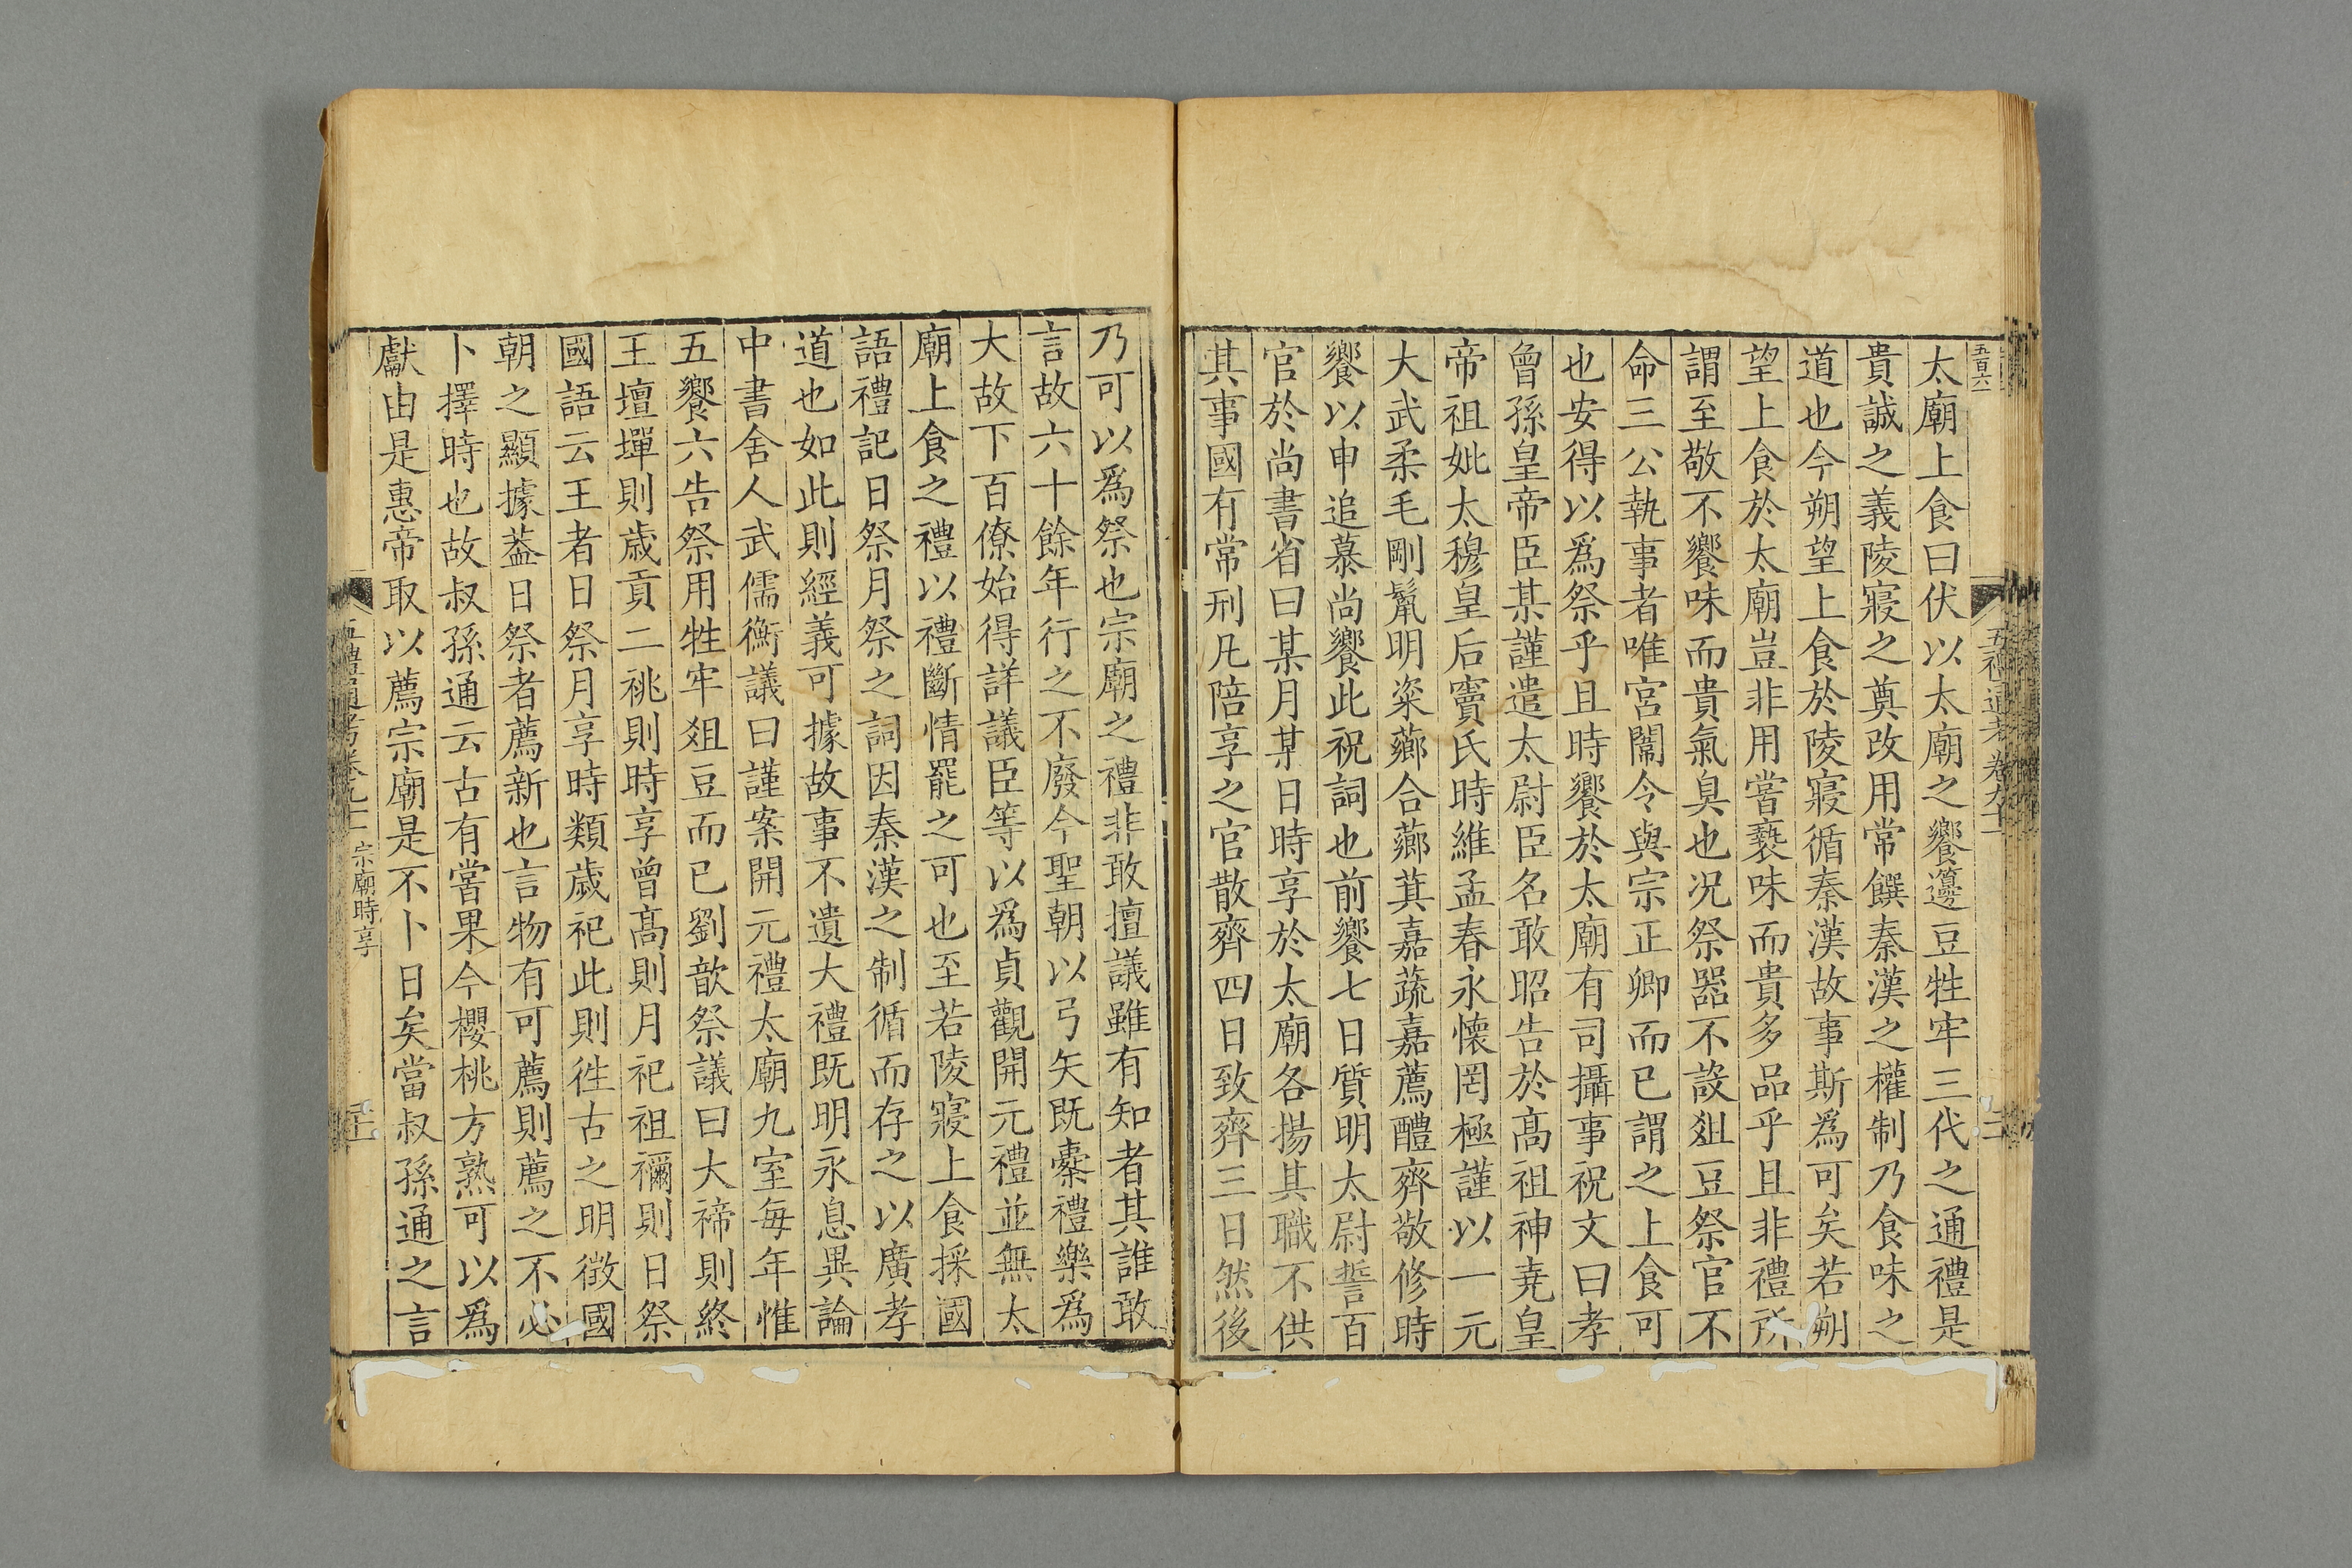 五百六
太廟上食曰伏以太廟之饗籩豆牲牢三代之通禮是
貴誠之義陵寢之奠改用常饌秦漢之權制乃食味之
道也今朔望上食於陵寢循秦漢故事斯為可矣若朔
望上食於太廟豈非用嘗褻味而貴多品乎且非禮所
謂至敬不饗味而貴氣臭也况祭器不設俎豆祭官不
命三公執事者唯宮闈令與宗正卿而已謂之上食可
也安得以爲祭乎且時饗於太廟有司攝事祝文曰孝
曾孫皇帝臣某謹遣太尉臣名敢昭告於高祖神堯皇
帝祖妣太穆皇后竇氏時維孟春永懷罔極謹以一元
大武柔毛剛鬛明粢薌合薌萁嘉蔬嘉薦醴齊敬修時
饗以申追慕尚饗此祝詞也前饗七日質明太尉誓百
官於尚書省曰某月某日時享於太廟各揚其職不供
其事國有常刑凡陪享之官散齊四日致齊三日然後
乃可以爲祭也宗廟之禮非敢擅議雖有知者其誰敢
言故六十餘年行之不廢今聖朝以弓矢既櫜禮樂爲
大故下百僚始得詳議臣等以爲貞觀開元禮並無太
廟上食之禮以禮斷情罷之可也至若陵寢上食採國
語禮記日祭月祭之詞因秦漢之制循而存之以廣孝
道也如此則經義可據故事不遺大禮既明永息異論
中書舍人武儒衡議曰謹案開元禮太廟九室每年惟
五饗六告祭用牲牢俎豆而已劉歆祭議曰大禘則終
王壇墠則歲貢二祧則時享曾高則月祀祖禰則日祭
國語云王者日祭月享時類歲祀此則徃古之明徵國
朝之顯據葢日祭者薦新也言物有可薦則薦之不必
卜擇時也故叔孫通云古有嘗果今櫻桃方熟可以爲
獻由是惠帝取以薦宗廟是不卜日矣當叔孫通之言
五禮通考卷九十一 宗廟時享